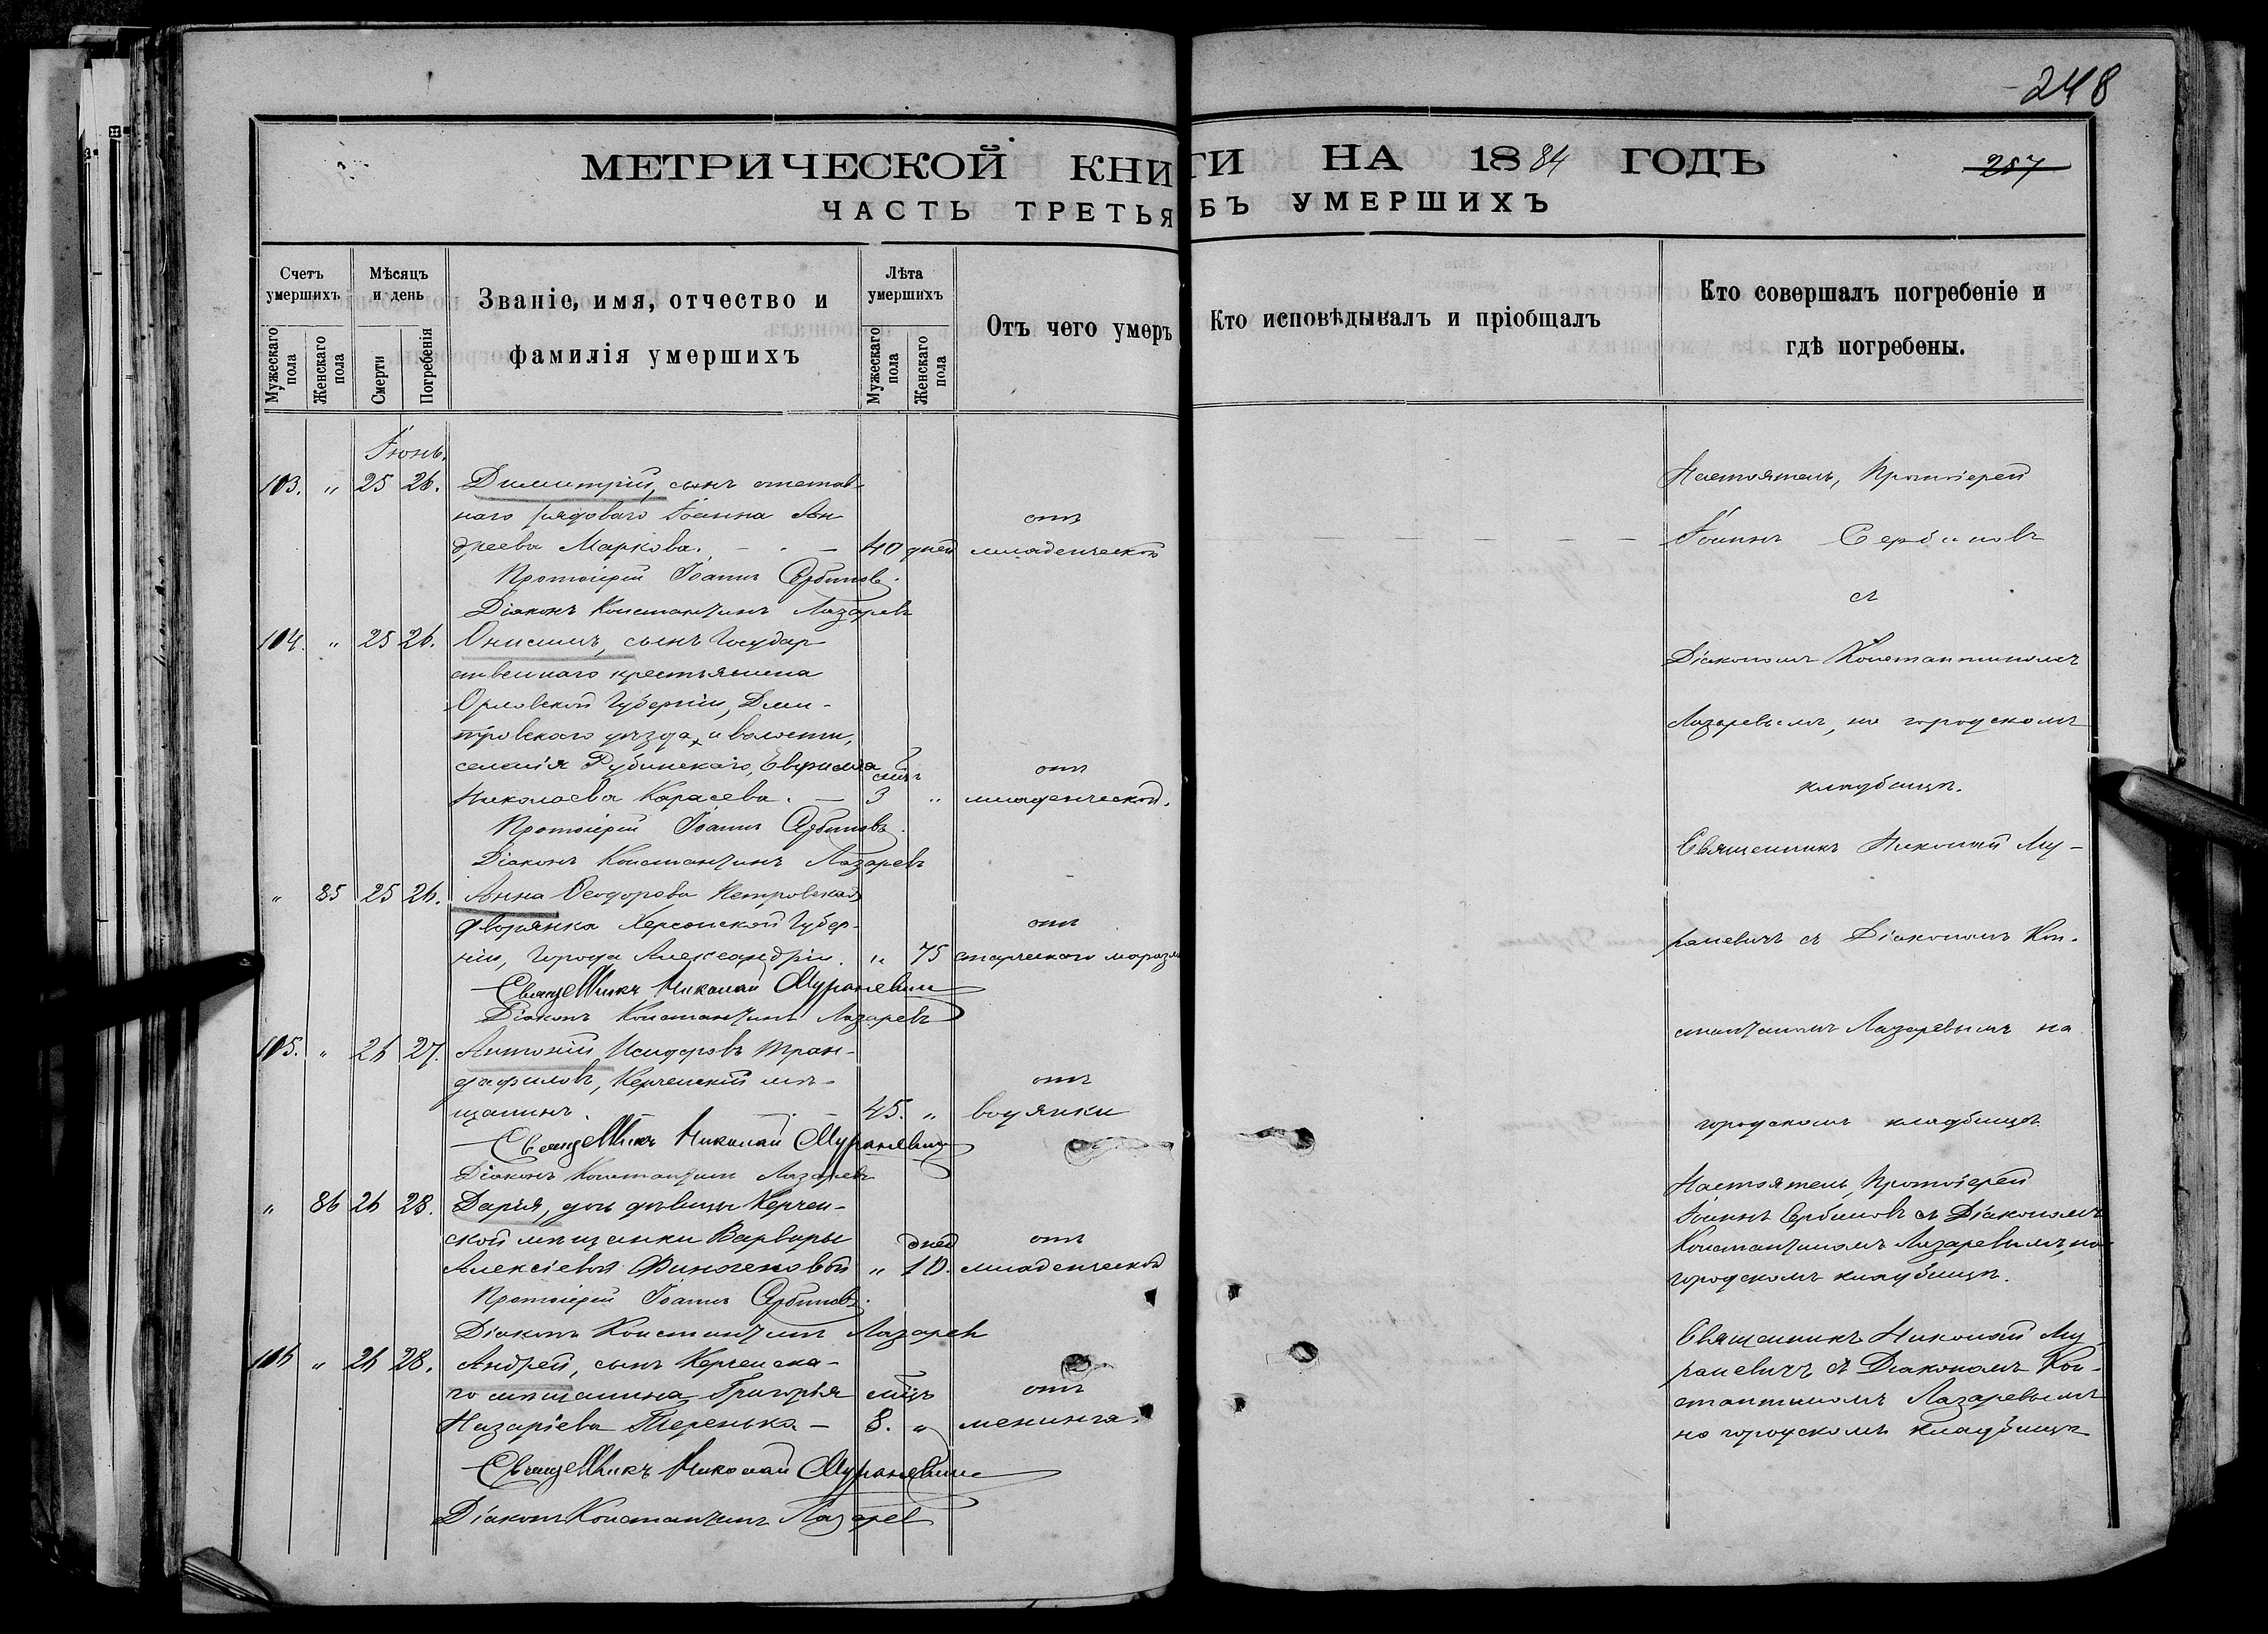 248
МЕТРИЧЕСКОЙ КНИГИ НА 1884 ГОДЪ
257
ЧАСТЬ ТРЕТЬЯ БЪ УМЕРШИХЪ
Счетъ умершихъ
Мужескаго пола
Женскаго пола
Мѣсяцъ и день
Смерти
Погребенія
Званіе, имя, отчество и
фамилія умершихъ
Лѣта умершихъ
Мужескаго пола
Женскаго пола
Отъ чего умеръ
Кто исповѣдывалъ и пріобщалъ
Кто совершалъ погребеніе и
гдѣ погребены.
Іюнь.
103. " 25 26. Димитрій, сынъ отстав-
наго рядоваго Іоанна Ан
дреева Маркова. 40 дней
отъ
младенческой
Протоіерей Іоаннъ Сербиновъ.
Діаконъ Константинъ Лазаревъ
104. " 25 26. Онисимъ, сынъ Государ
ственнаго крестьянина
Орловской Губерніи, Дми-
тровскаго уѣзда, и волости,
селенія Рубинскаго,
Николаева Карасева. мцъ 3 "
отъ
младенческой.
Протоіерей Іоаннъ Сербиновъ.
Діаконъ Константинъ Лазаревъ
" 85 25 26. Анна Ѳеодорова Петровская
дворянка Херсонской Губер-
ніи, города Александріи. " 75
отъ
старческаго маразм
Священникъ Николай Мураневичъ
Діаконъ Константинъ Лазаревъ
105. " 26 27. Антоній Исидоровъ Тран-
дафиловъ, Керченскій мѣ-
щанинъ. 45. "
отъ
водянки
Священникъ Николай Мураневичъ
Діаконъ Константинъ Лазаревъ
" 86 26 28. Дарія, дочь дѣвицы Керчен-
ской мѣщанки Варвары
Алексіевой Финогеновой " дней 10.
отъ
младенческой
Протоіерей Іоаннъ Сербиновъ.
Діаконъ Константинъ Лазаревъ
106 " 26 28. Андрей, сынъ Керченска-
го мѣщанина Григорія
Назаріева Теренька - мцъ 8. "
отъ
менинга
Священникъ Николай Мураневичъ
Діаконъ Константинъ Лазаревъ
Настоятель, Протоіерей
Іоаннъ Сербиновъ
съ
Діакономъ Константиномъ
Лазаревымъ, на городскомъ
кладбищѣ.
Священникъ Николай Му-
раневичъ съ Діакономъ Кон-
стантиномъ Лазаревымъ на
городскомъ кладбищѣ
Настоятель, Протоіерей
Іоаннъ Сербиновъ съ Діакономъ
Константиномъ Лазаревымъ, на
городскомъ кладбищѣ.
Священникъ Николай Му-
раневичъ съ Діакономъ Кон-
стантиномъ Лазаревымъ
на городскомъ кладбищѣ